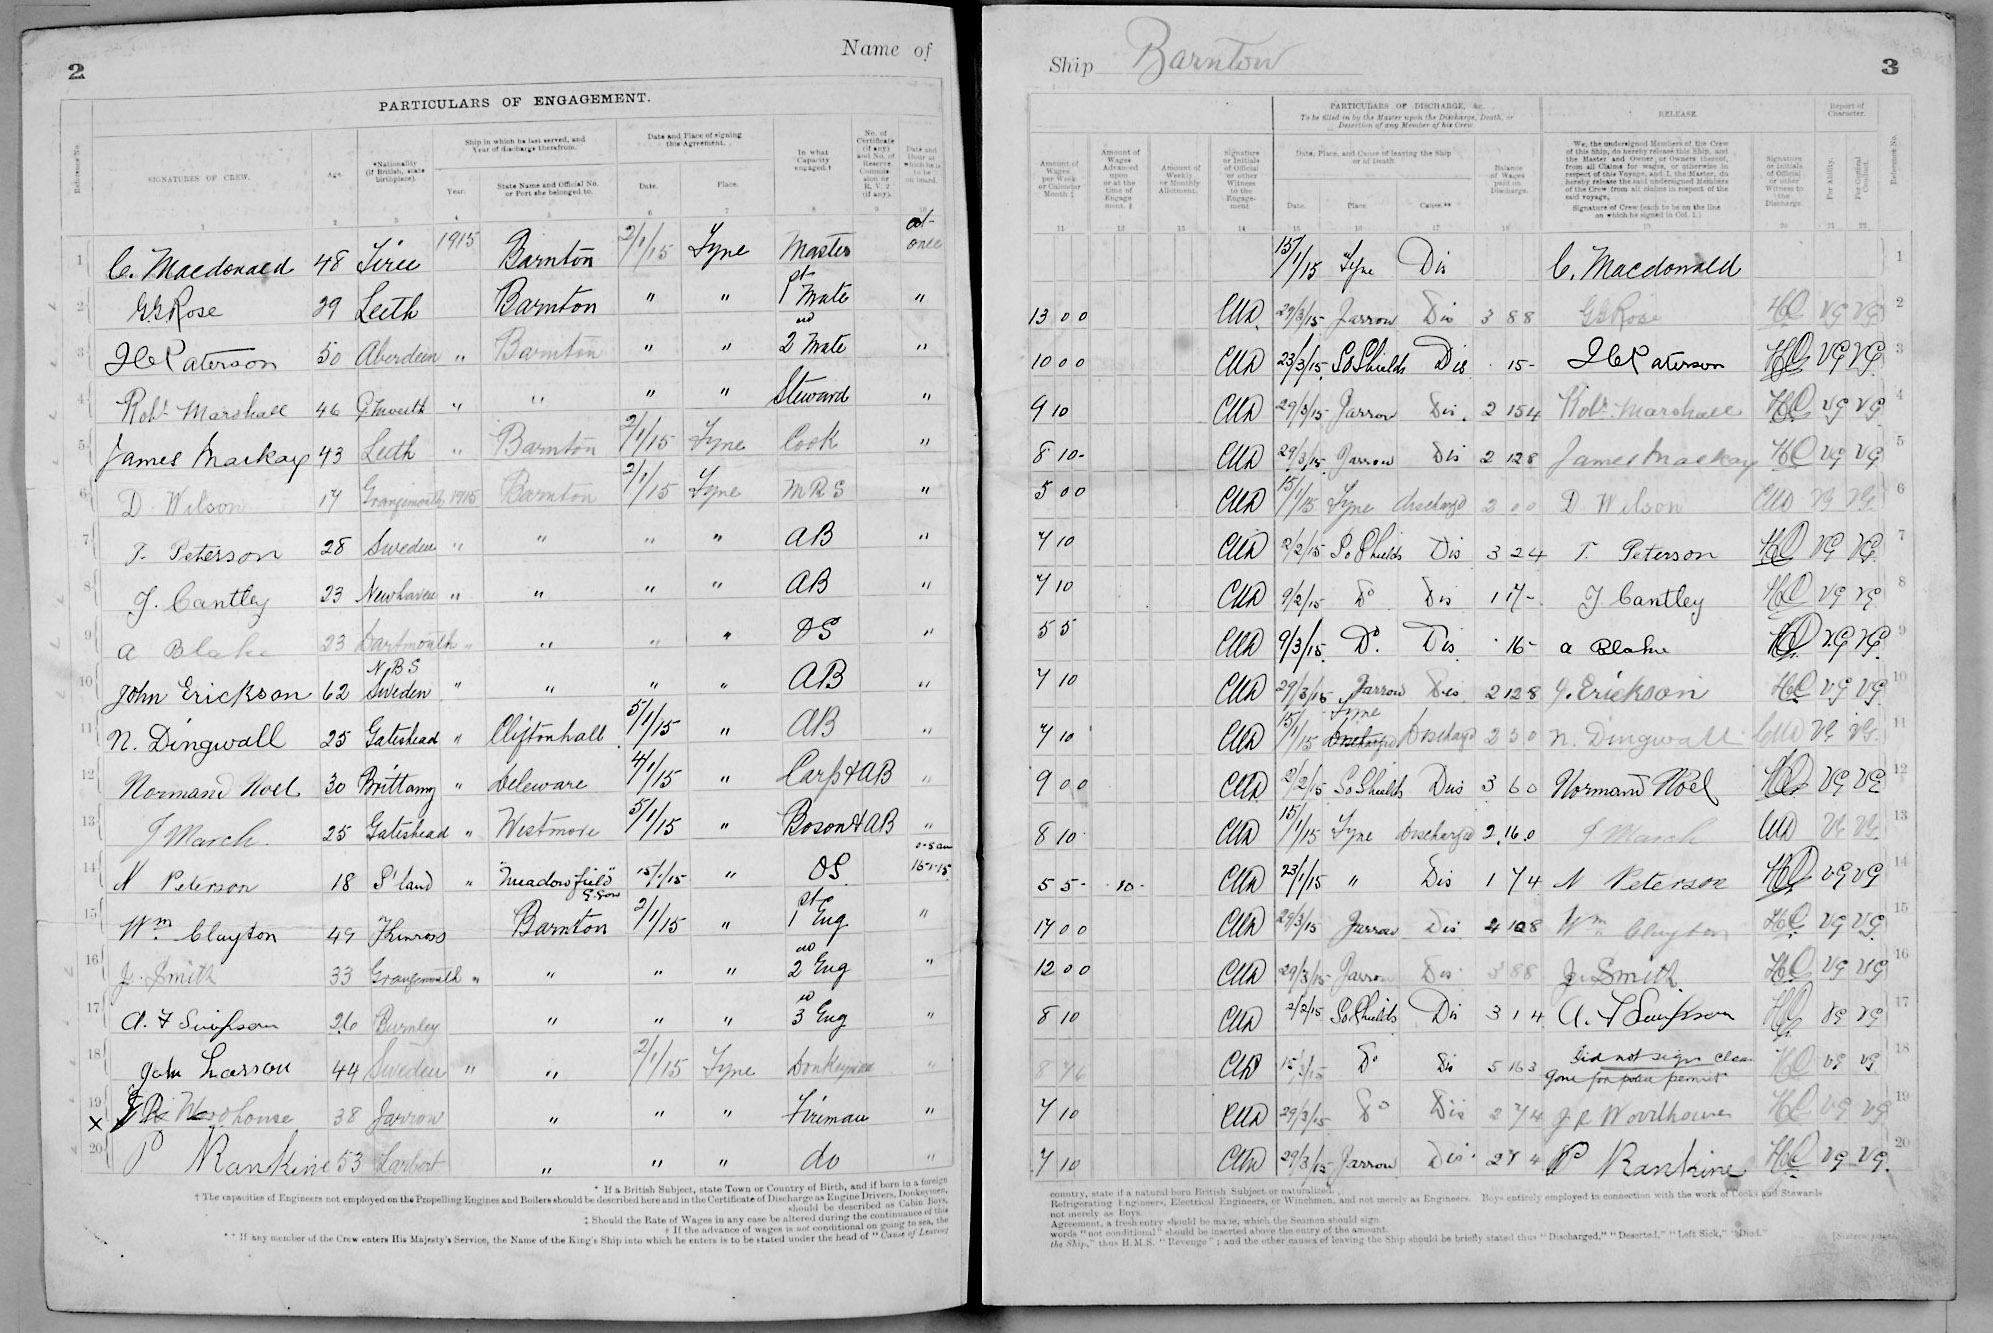 2
Name of
PARTICULARS OF ENGAGEMENT.
Reference No.
SIGNATURES OF CREW.
Age.
*Nationality (if British, state birthplace).
Ship in which he last served, and Year of discharge therefrom.
Year.
State Name and Official No. or Port she belonged to.
Date and Place of signing this Agreement.
Date.
Place.
In what Capacity engaged.†
No. of Certificate (if any) and No. of Reserve Commission or R.V.2 (if any).
Date and Hour at which he is to be on board.
1 2 3 4 5 6 7 8 9 10
1 C. Macdonald 48 Tiree 1915 Barnton 2/1/15 Tyne Master at once
2 G.S. Rose 29 Leith Barnton " " 1st Mate "
3 J C Paterson 50 Aberdeen " Barnton " " 2nd Mate "
4 Robt Marshall 46 " " " " Steward "
5 James Mackay 43 Leith " Barnton 2/1/15 Tyne Cook "
6 D. Wilson 17 Grangemouth 1915 Barnton 2/1/15 Tyne M R S "
7 T. Peterson 28 Sweden " " " " AB "
8 J. Cantley 23 Newhaven " " " " AB "
9 A Blake 23 Dartmouth " " " " OS "
10 John Erickson 62 N.B.S Sweden " " " " AB "
11 N. Dingwall 25 Gateshead " Cliftonhall 5/1/15 " AB "
12 Normand Noel 30 Brittany " Deleware 4/1/15 " Carp & AB "
13 J March. 25 Gateshead " Westmore 5/1/15 " Boson & AB "
14 N Peterson 18 S'land " "Meadowfield" 15/1/15 " OS. 16-1-15
15 Wm Clayton 49 Kinross Barnton 2/1/15 " 1st Eng "
16 J. Smith 33 Grangemouth " " " " 2nd Eng "
17 A. F Simpson 26 Burnley " " " 3rd Eng "
18 John Larson 44 Sweden " " 2/1/15 Tyne Donkeyman "
19 x J R Woodhouse 38 Jarrow " " " Fireman "
20 P Rankine 53 Larbert " " " do "
* If a British Subject, state Town or Country of Birth, and if born in a foreign
† The capacities of Engineers not employed on the Propelling Engines and Boilers should be described here and in the Certificate of Discharge as Engine Drivers, Donkeymen,
should be described as Cabin Boys,
‡ Should the Rate of Wages in any case be altered during the continuance of this
§ If the advance of wages is not conditional on going to sea, the
** If any member of the Crew enters His Majesty's Service, the Name of the King's Ship into which he enters is to be stated under the head of "Cause of Leaving
Ship Barnton
3
Amount of Wages per Week or Calendar Month ‡
Amount of Wages Advanced upon or at the time of Engagement. §
Amount of Weekly or Monthly Allotment.
Signature or Initials of Official or other Witness to the Engagement
PARTICULARS OF DISCHARGE, &c.
To be filled in by the Master upon the Discharge, Death, or Desertion of any Member of his Crew.
Date, Place, and Cause of leaving the Ship or of Death
Date.
Place.
Cause.**
Balance of Wages paid on Discharge.
RELEASE
We, the undersigned Members of the Crew of this Ship, do hereby release this Ship, and the Master and Owner, or Owners thereof, from all Claims for wages, or otherwise in respect of this Voyage, and I, the Master, do hereby release the said undersigned Members of the Crew from all claims in respect of the said voyage.
Signature of Crew (each to be on the line on which he signed in Col. 1.)
Signature or Initials of Official or other Witness to the Discharge.
Report of Character.
For Ability.
For General Conduct.
Reference No.
11 12 13 14 15 16 17 18 19 20 21 22
15/1/15 Tyne Dis C. Macdonald 1
13 0 0 29/3/15 Jarrow Dis 3 8 8 G S Rose HC VG VG 2
10 0 0 23/3/15 So Shields Dis 15 - J C Paterson HC VG VG 3
9 10 29/3/15 Jarrow Dis. 2 15 4 Robt Marshall HC VG VG 4
8 10 - 29/3/15 Jarrow Dis 2 12 8 James Mackay HC VG VG 5
5 0 0 15/1/15 Tyne Discharged 2 0 0 D. Wilson VG VG 6
7 10 2/2/15 So Shields Dis 3 2 4 T. Peterson HC VG VG 7
7 10 9/2/15 Do Dis 1 17 - J Cantley HC VG VG 8
5 5 9/3/15 Do. Dis 16 - A Blake HC VG VG 9
7 10 29/3/15 Jarrow Dis 2 12 8 J. Erickson HC VG VG 10
7 10 15/1/15 Tyne Discharged Discharged 2 5 0 N. Dingwall VG VG 11
9 0 0 2/2/15 So Shields Dis 3 6 0 Normand Noel HC VG VG 12
8 10 15/1/15 Tyne Discharged 2 16 0 J March VG VG 13
5 5 - 10 - 23/1/15 " Dis 1 7 4 N Peterson HC VG VG 14
17 0 0 29/3/15 Jarrow Dis 4 10 8 Wm Clayton HC VG VG 15
12 0 0 29/3/15 Jarrow Dis 3 8 8 J. Smith HC VG VG 16
8 10 2/2/15 So Shields Dis 3 1 4 A. F Simpson HC VG VG 17
8 7 6 Do Dis 5 16 3 Did not sign clear HC VG VG 18
Gone for police permit
7 10 29/3/15 Do Dis 2 7 4 J R Woodhouse HC VG VG 19
7 10 29/3/15 Jarrow Dis 2 7 4 P Rankine HC VG VG 20
country, state if a natural born British Subject or naturalized.
Refrigerating Engineers, Electrical Engineers, or Winchmen, and not merely as Engineers. Boys entirely employed in connection with the work of Cooks and Stewards
not merely as Boys.
Agreement, a fresh entry should be made, which the Seamen should sign.
words "not conditional" should be inserted above the entry of the amount.
the Ship," thus H.M.S. "Revenge"; and the other causes of leaving the Ship should be briefly stated thus "Discharged," "Deserted," "Left Sick," "Died."